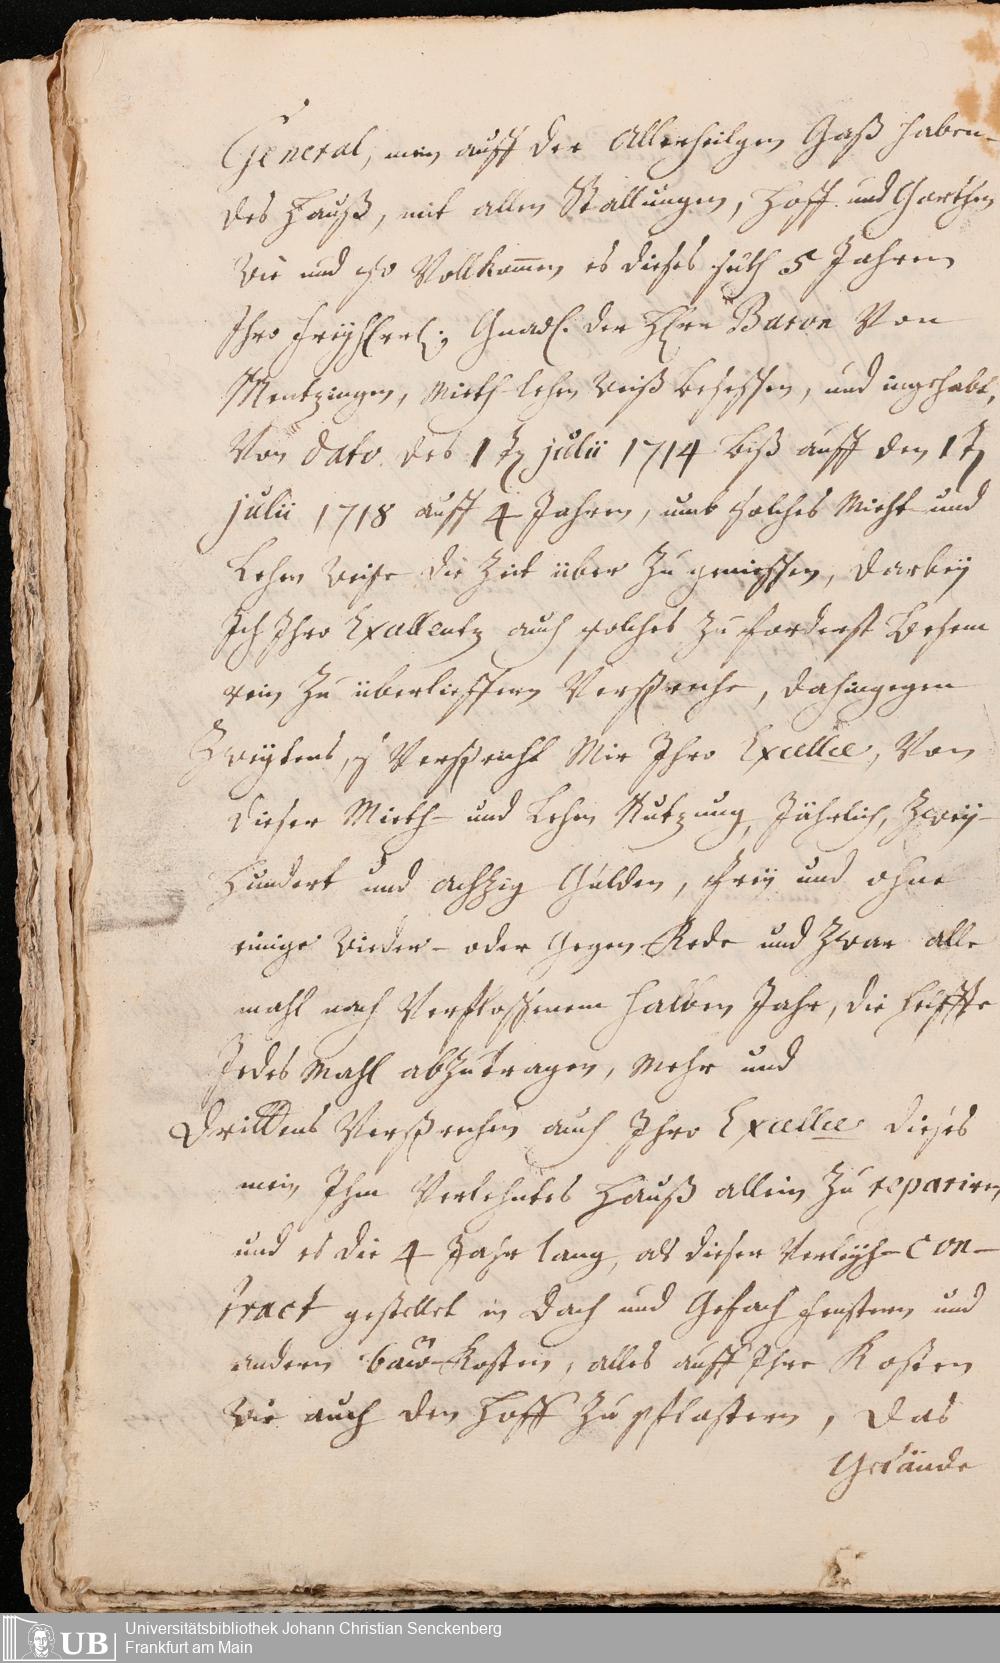 General, mein auff der Allerheilgen Gaß haben-
des Hauß, mit allen Stallungen, Hoff und Garthen
Wie und so Vollkommen es dieses seith 5 Jahren
Ihro Freyherrl. Gnad. der Herr Baron Von
Mentzingen, Mieth-Lehn Weiß besessen, und ingehabt,
Von dato des 1 julii 1714 biß auff den 1
julii 1718 auff 4 Jahren, umb solches Mieht und
Lehn Weise die Zeit über Zu geniessen, darbey
Ich Ihro Excellentz auch solches Zu forderst Besem
rein Zu überlieffern Verspreche, dahingegen
Zweytens, Verspricht Mir Ihro Excellce, Von
dieser Mieth- und Lehn Nutzung, Jährlich, Zwey-
Hundert und achzig Gulden, frey und ohne
einige Wieder- oder Gegen Rede und Zwar alle
mahl nach Verflossenem halben Jahr, die helffte
Jedes Mahl abZutragen, Mehr und
Drittens Versprechen auch Ihro Excellce dieses
mein Ihm Verlehntes Hauß allein Zu repariren
und es die 4 Jahr lang, als dieser Verleyh-Con-
tract gestellet in Dach und Gefach fenstern und
andern bauw-Kosten, alles auff Ihre Kosten
Wie auch den Hoff Zu pflastern, Das
Gebäude
Universitätsbibliothek Johann Christian Senckenberg
Frankfurt am Main
UB